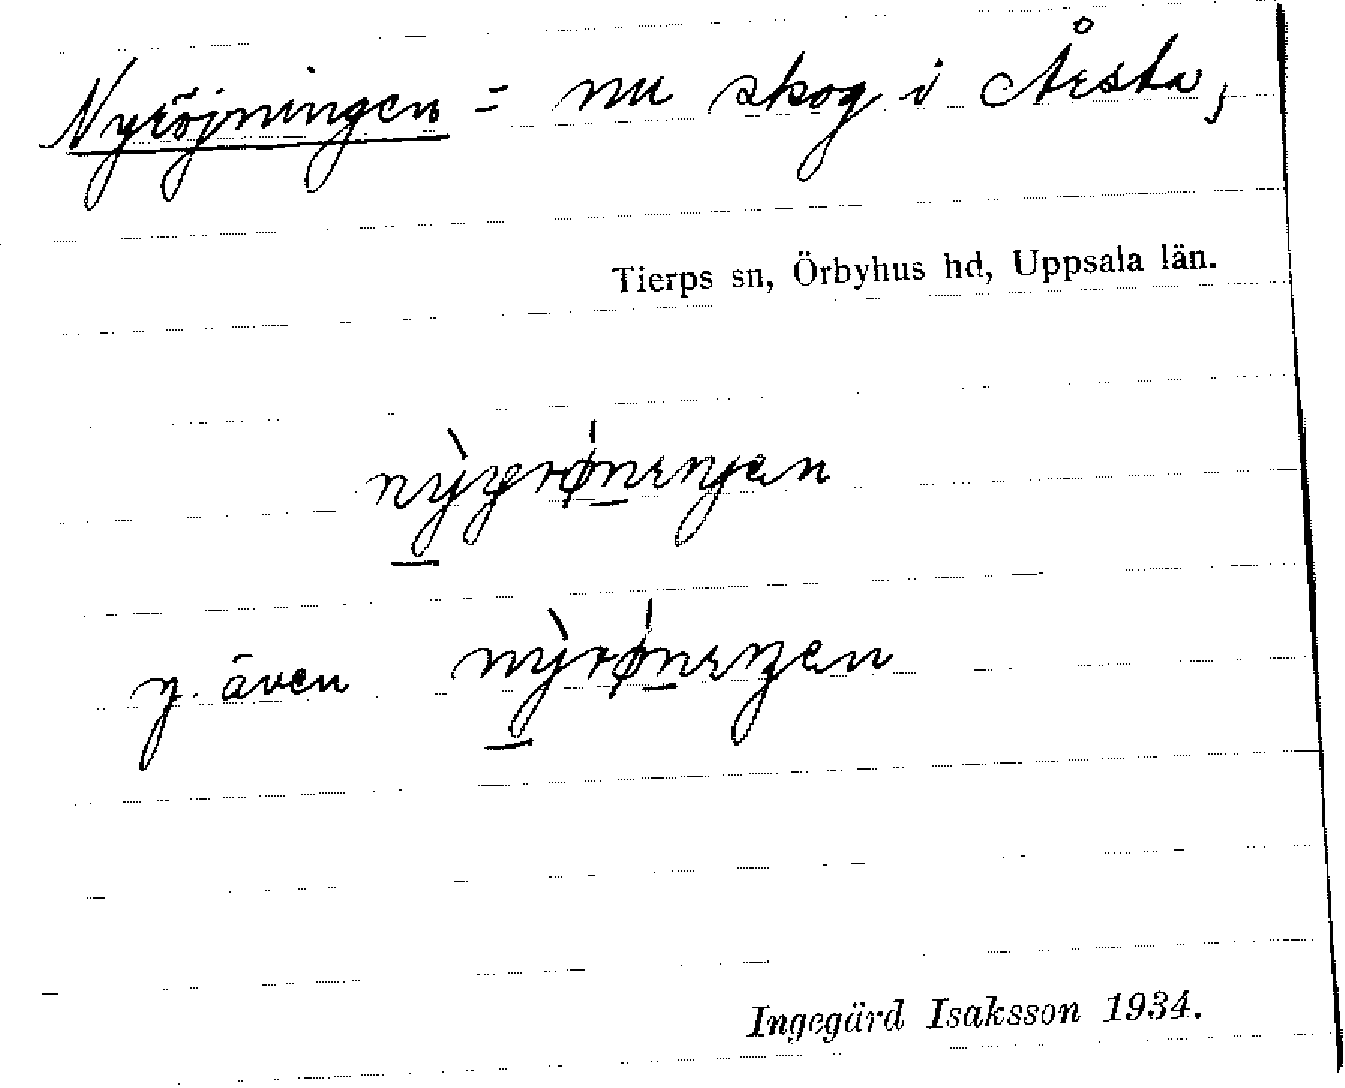 Nyröjningen = nu skog i Årsta,
Tierps sn, Örbyhus hd, Uppsala län.
även
Ingegärd Isaksson 1934.